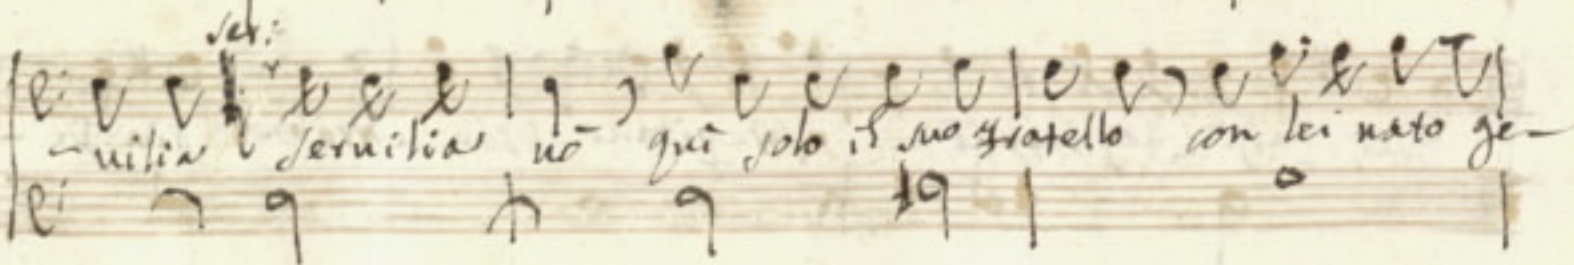 ser:
- uilia seruilia nò quì solo il suo fratello con lei nato ge-